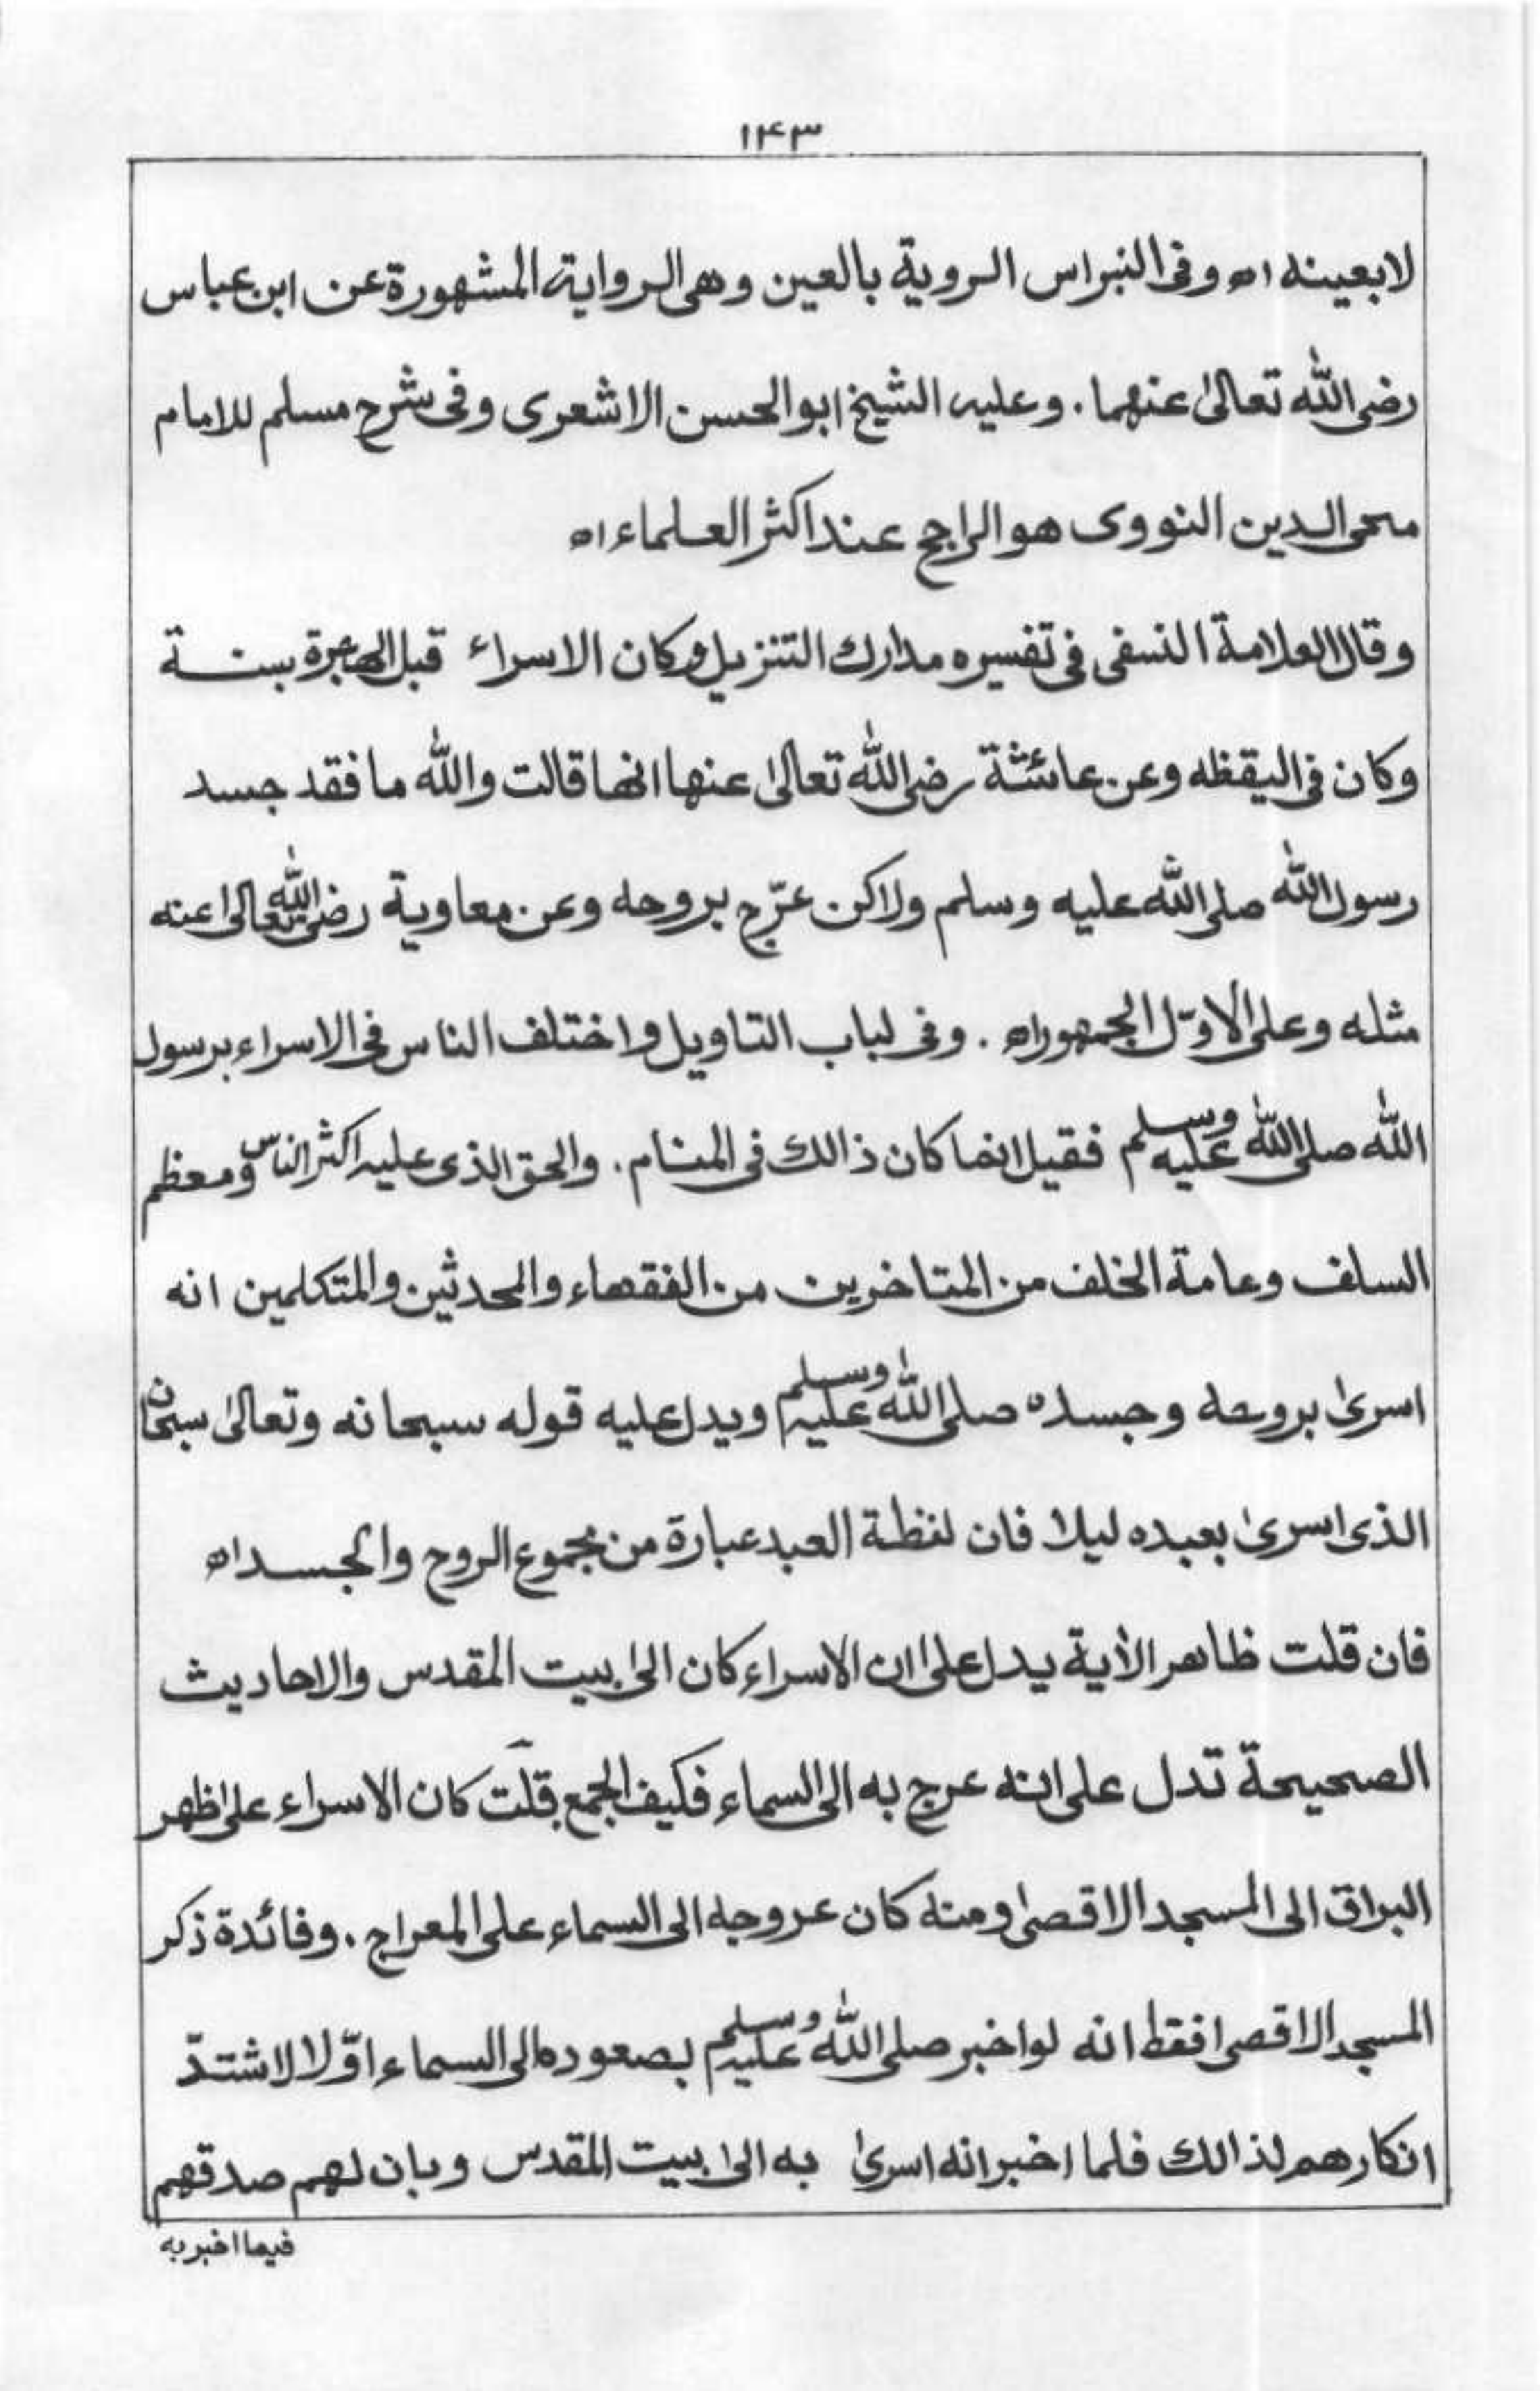 ۱۴۳
لابعينه اه وفى النبراس الروية بالعين وهى الرواية المشهورة عن ابن عباس
رضى الله تعالىٰ عنهما . وعليه الشيخ ابوالحسن الاشعرى وفى شرح مسلم للامام
محى الدين النووى هو الراجح عند اكثر العلماء اه
وقال العلامة النسفى فى تفسيره مدارك التنزيل وكان الاسراء قبل الهجرة بسنة
وكان فى اليقظه وعن عائشة رضى الله تعالىٰ عنها انها قالت والله ما فقد جسد
رسول الله صلى الله عليه وسلم ولاكن عرّج بروحه وعن معاوية رضى الله تعالىٰ عنه
مثله وعلى الاوّل الجمهور اه . وفى لباب التاويل واختلف الناس فى الاسراء برسول
الله صلى الله عليه وسلم فقيل انما كان ذالك فى المنام . والحق الذى عليه اكثر الناس ومعظم
السلف وعامة الخلف من المتاخرين من الفقهاء والمحدثين والمتكلمين انه
اسرىٰ بروحه وجسده صلى الله عليه وسلم ويدل عليه قوله سبحانه وتعالىٰ سبحان
الذى اسرىٰ بعبده ليلا فان لفظة العبد عبارة من مجموع الروح والجسد اه
فان قلت ظاهر الأية يدل علىٰ ان الاسراء كان الىٰ بيت المقدس والاحاديث
الصحيحة تدل على انه عرج به الى السماء فكيف الجمع قلت كان الاسراء علىٰ ظهر
البراق الى المسجد الاقصىٰ ومنه كان عروجه الى السماء على المعراج . وفائدة ذكر
المسجد الاقصىٰ فقط انه لواخبر صلى الله عليه وسلم بصعوده الى السماء اوّلا لاشتدّ
انكارهم لذالك فلما اخبر انه اسرىٰ به الىٰ بيت المقدس وبان لهم صدقهم
فيما اخبر به